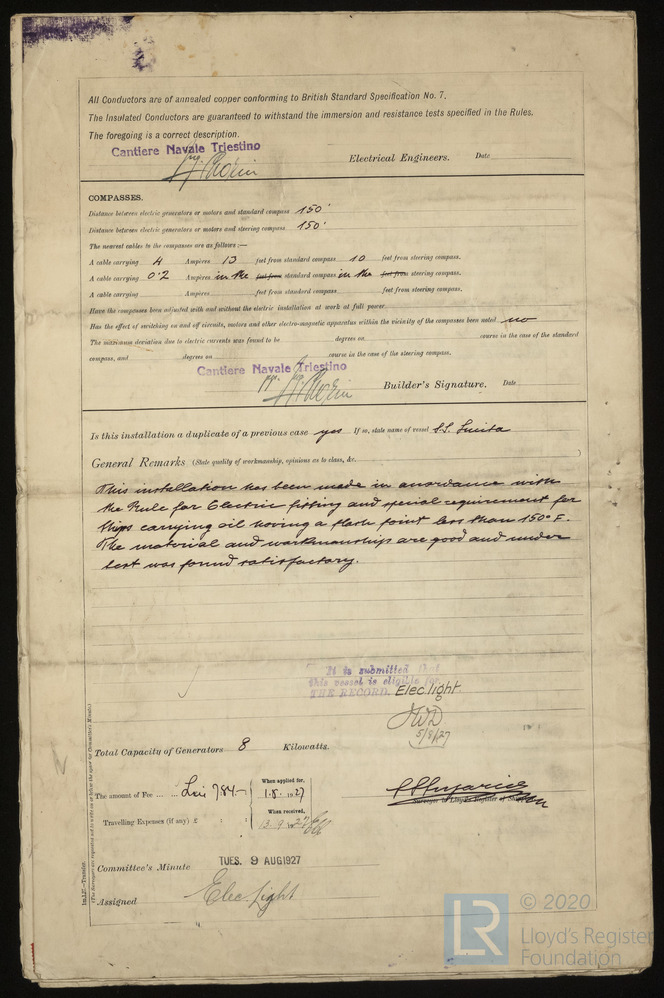 All Conductors are of annealed copper conforming to British Standard Specification No. 7.
The Insulated Conductors are guaranteed to withstand the immersion and resistance tests specified in the Rules.
The foregoing is a correct description.
Cantiere Navale Triestino
Electrical Engineers. Date
COMPASSES.
Distance between electric generators or motors and standard compass 150'
Distance between electric generators or motors and steering compass 150'
The nearest cables to the compasses are as follows:—
A cable carrying 4 Ampères 13 feet from standard compass 10 feet from steering compass.
A cable carrying 0.2 Ampères in the feet from standard compass in the feet from steering compass.
A cable carrying Ampères feet from standard compass feet from steering compass.
Have the compasses been adjusted with and without the electric installation at work at full power
Has the effect of switching on and off circuits, motors and other electro-magnetic apparatus within the vicinity of the compasses been noted no
The maximum deviation due to electric currents was found to be degrees on course in the case of the standard
compass, and degrees on course in the case of the steering compass.
Cantiere Navale Triestino
Builder's Signature. Date
Is this installation a duplicate of a previous case yes If so, state name of vessel S.S.
General Remarks (State quality of workmanship, opinions as to class, &c.
This installation has been made in accordance with
the Rule for Electric fitting and special requirement for
ships carrying oil having a flash point less than 150° F.
The material and workmanship are good and under
test was found satisfactory.
It is submitted that
this vessel is eligible for
THE RECORD. Elec. light
5/8/27
Total Capacity of Generators 8 Kilowatts.
The amount of Fee ... ... Lire 784.— When applied for, 1.8.1927
When received,
Travelling Expenses (if any) £ : : 13.9.1927
Surveyor to Lloyd's Register of Shipping
Committee's Minute TUES. 9 AUG 1927
Assigned Elec. Light
(The Surveyors are requested not to write on or below the space for Committee's Minute.)
© 2020
LR
Lloyd's Register
Foundation